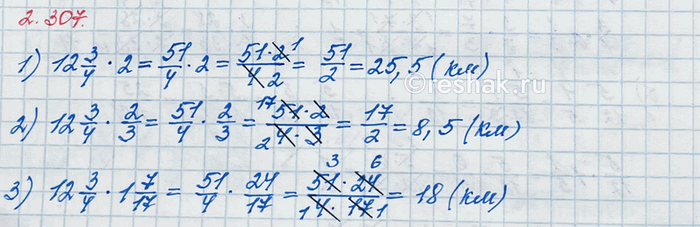 2.307.
1) 12 3/4 · 2 = 51/4 · 2 = 51·2 1/4 2 = 51/2 = 25,5 (км)
©reshak.ru
2) 12 3/4 · 2/3 = 51/4 · 2/3 = 17 51·2/2 4·3 = 17/2 = 8,5 (км)
3) 12 3/4 · 1 7/17 = 51/4 · 24/17 = 3 51 · 6 24/1 4 · 17 1 = 18 (км)